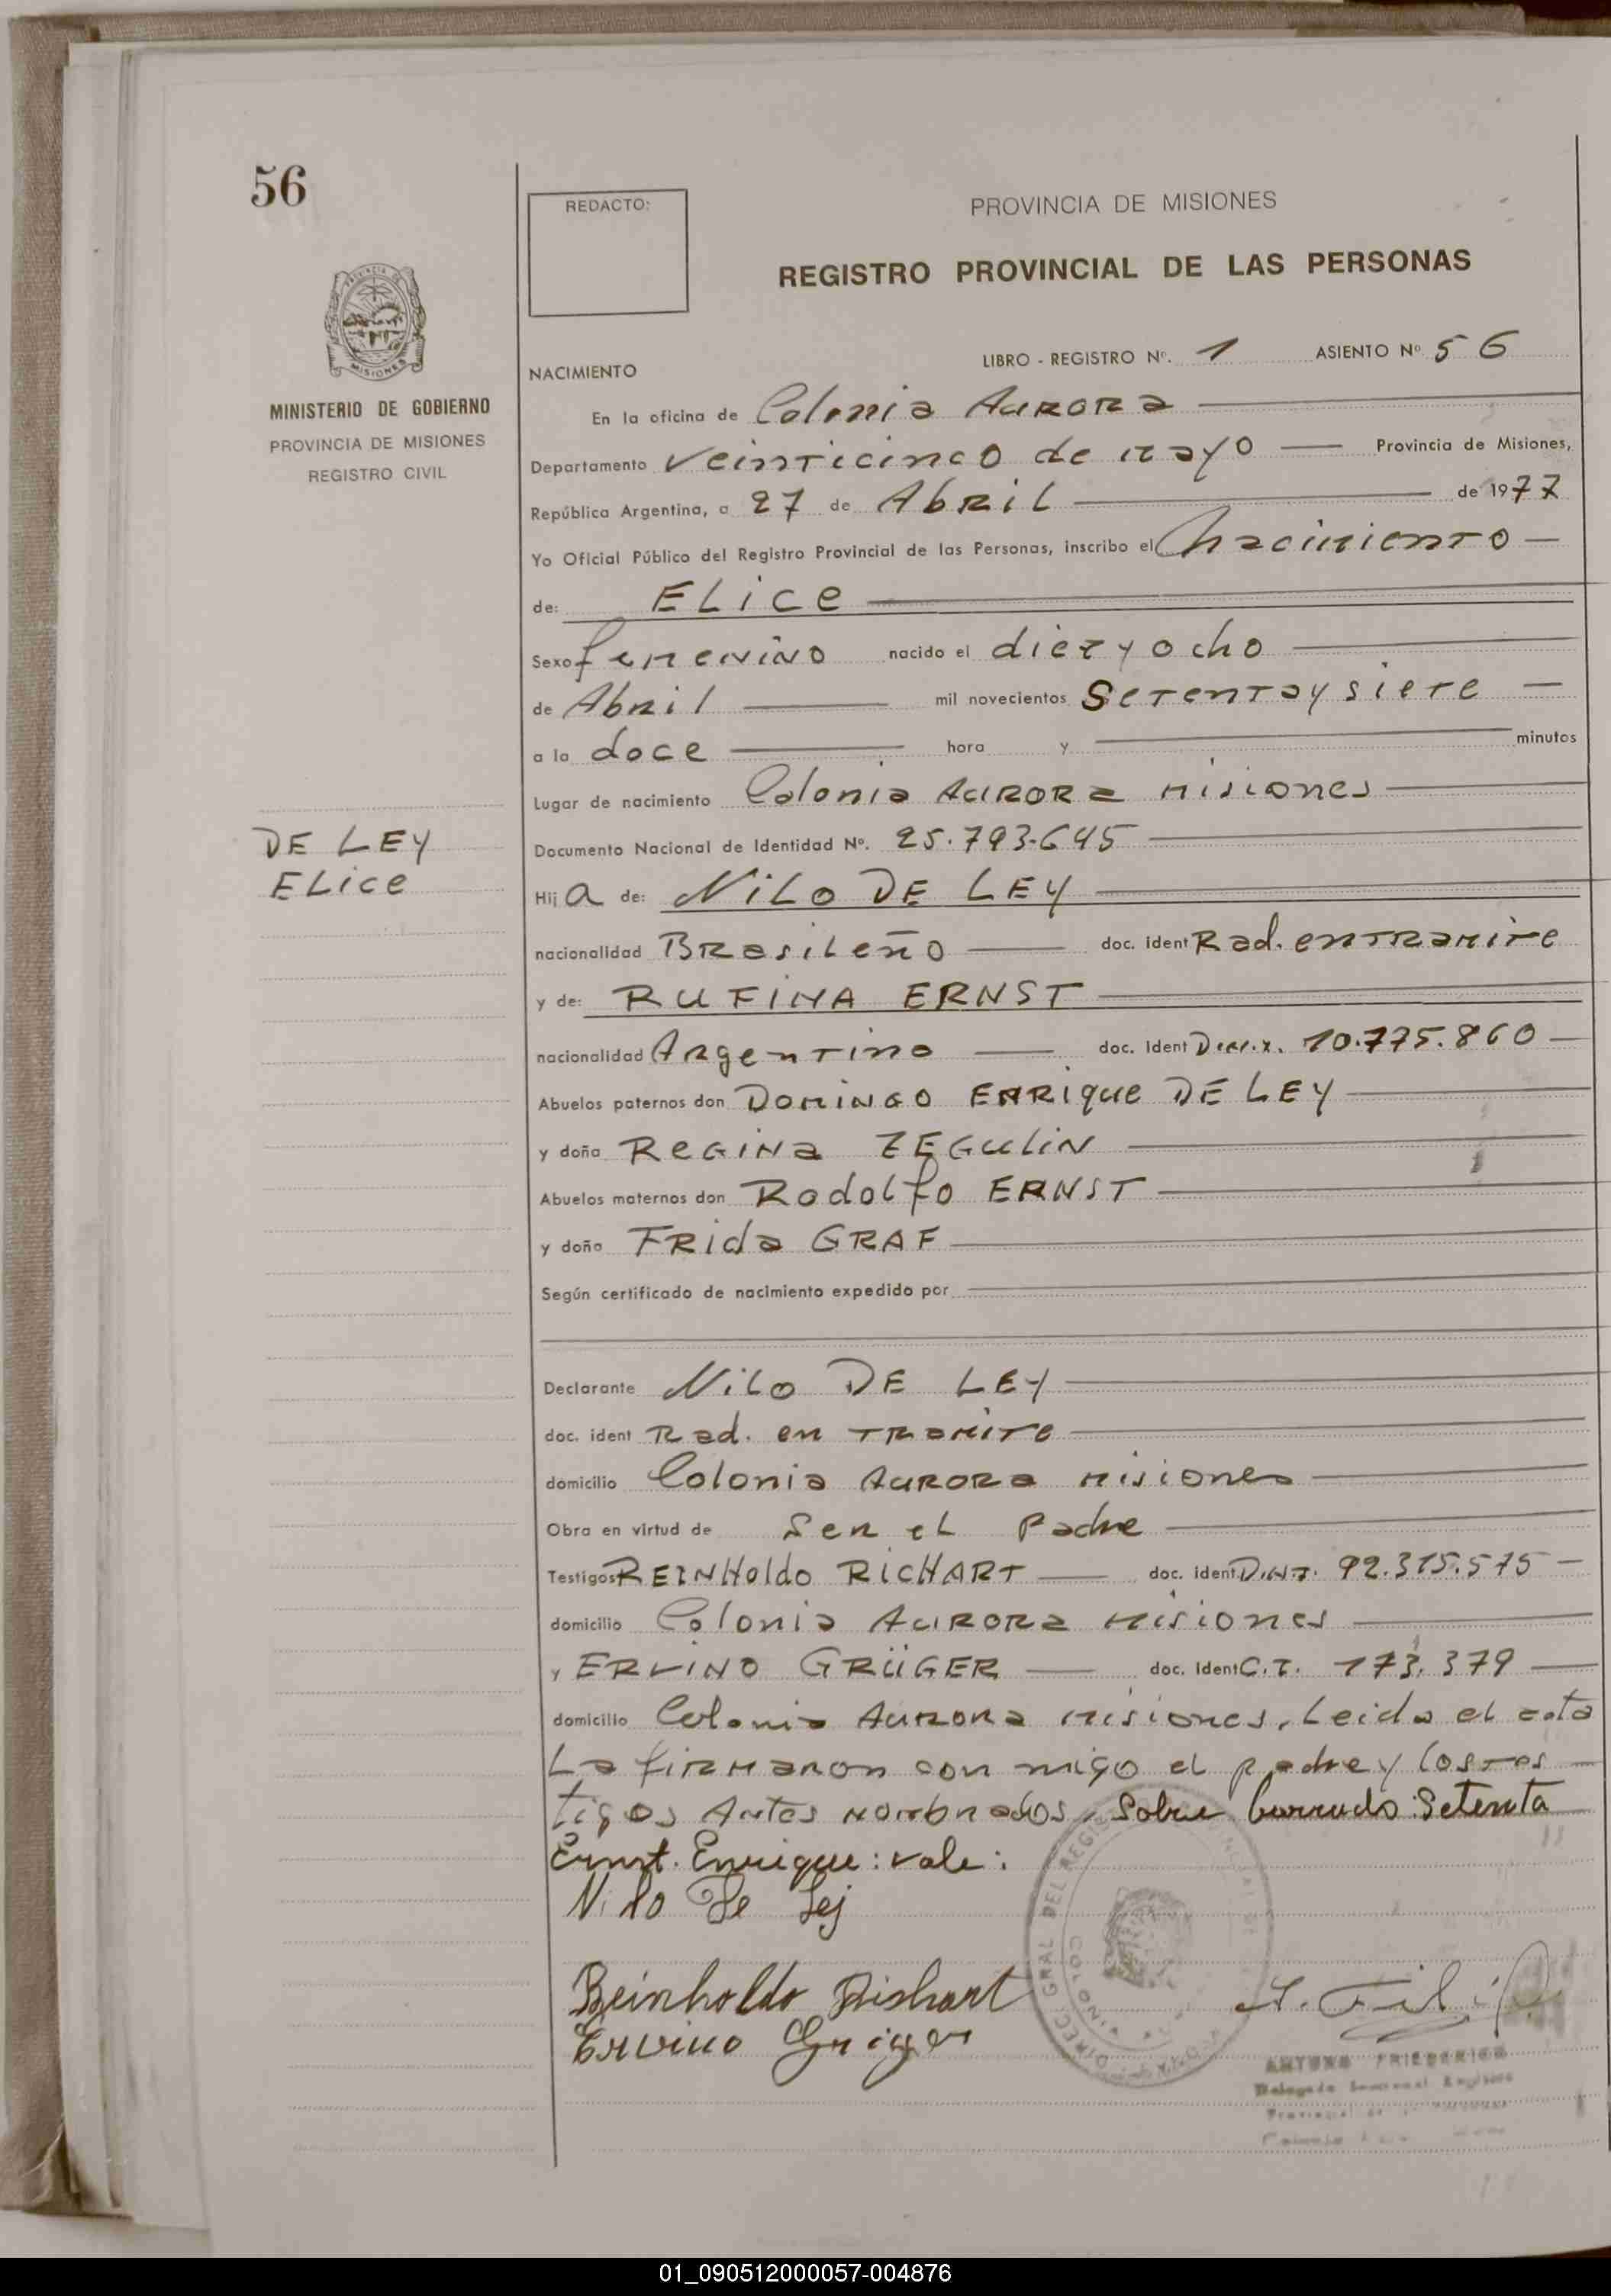 56
REDACTO:
PROVINCIA DE MISIONES
REGISTRO PROVINCIAL DE LAS PERSONAS
MISIONES
MINISTERIO DE GOBIERNO
PROVINCIA DE MISIONES
REGISTRO CIVIL
LIBRO - REGISTRO Nº. 1 ASIENTO Nº 56
NACIMIENTO
En la oficina de Colonia Aurora
Departamento veinticinco de mayo Provincia de Misiones,
República Argentina, a 27 de Abril de 1977
Yo Oficial Público del Registro Provincial de las Personas, inscribo el nacimiento
de: ELice
Sexo femenino nacido el diez y ocho
de Abril mil novecientos Setentaysiete
a la doce hora y minutos
Lugar de nacimiento Colonia Aurora Misiones
DE LEY
ELice
Documento Nacional de Identidad Nº. 25.793.645
Hij a de: NiLo DE LEY
nacionalidad BRasiLeño doc. ident Rad. en tramite
y de: RUFINA ERNST
nacionalidad Argentina doc. Ident 10.775.860
Abuelos paternos don Domingo ENRique DE LEY
y doña Regina ZEGuliN
Abuelos maternos don Rodolfo ERNST
y doña FRida GRAF
Según certificado de nacimiento expedido por
Declarante NiLo DE LEY
doc. ident Rad. en tramite
domicilio Colonia Aurora Misiones
Obra en virtud de Ser el Padre
Testigos REINHoldo RICHART doc. ident D.N.I. 92.315.575
domicilio Colonia Aurora Misiones
y ERVINO GRÜGER doc. Ident C.I. 173.379
domicilio Colonia Aurora Misiones. Leida el acta
La firmaron con migo el padre y los tes
tigos Antes nombrados, Sobre borrado: Setenta
Ernst. Enrique: vale:
Nilo De Lej
Reinholdo Rishart
Ervino Grüger
ARTURO FRIEDERICH
01_090512000057-004876